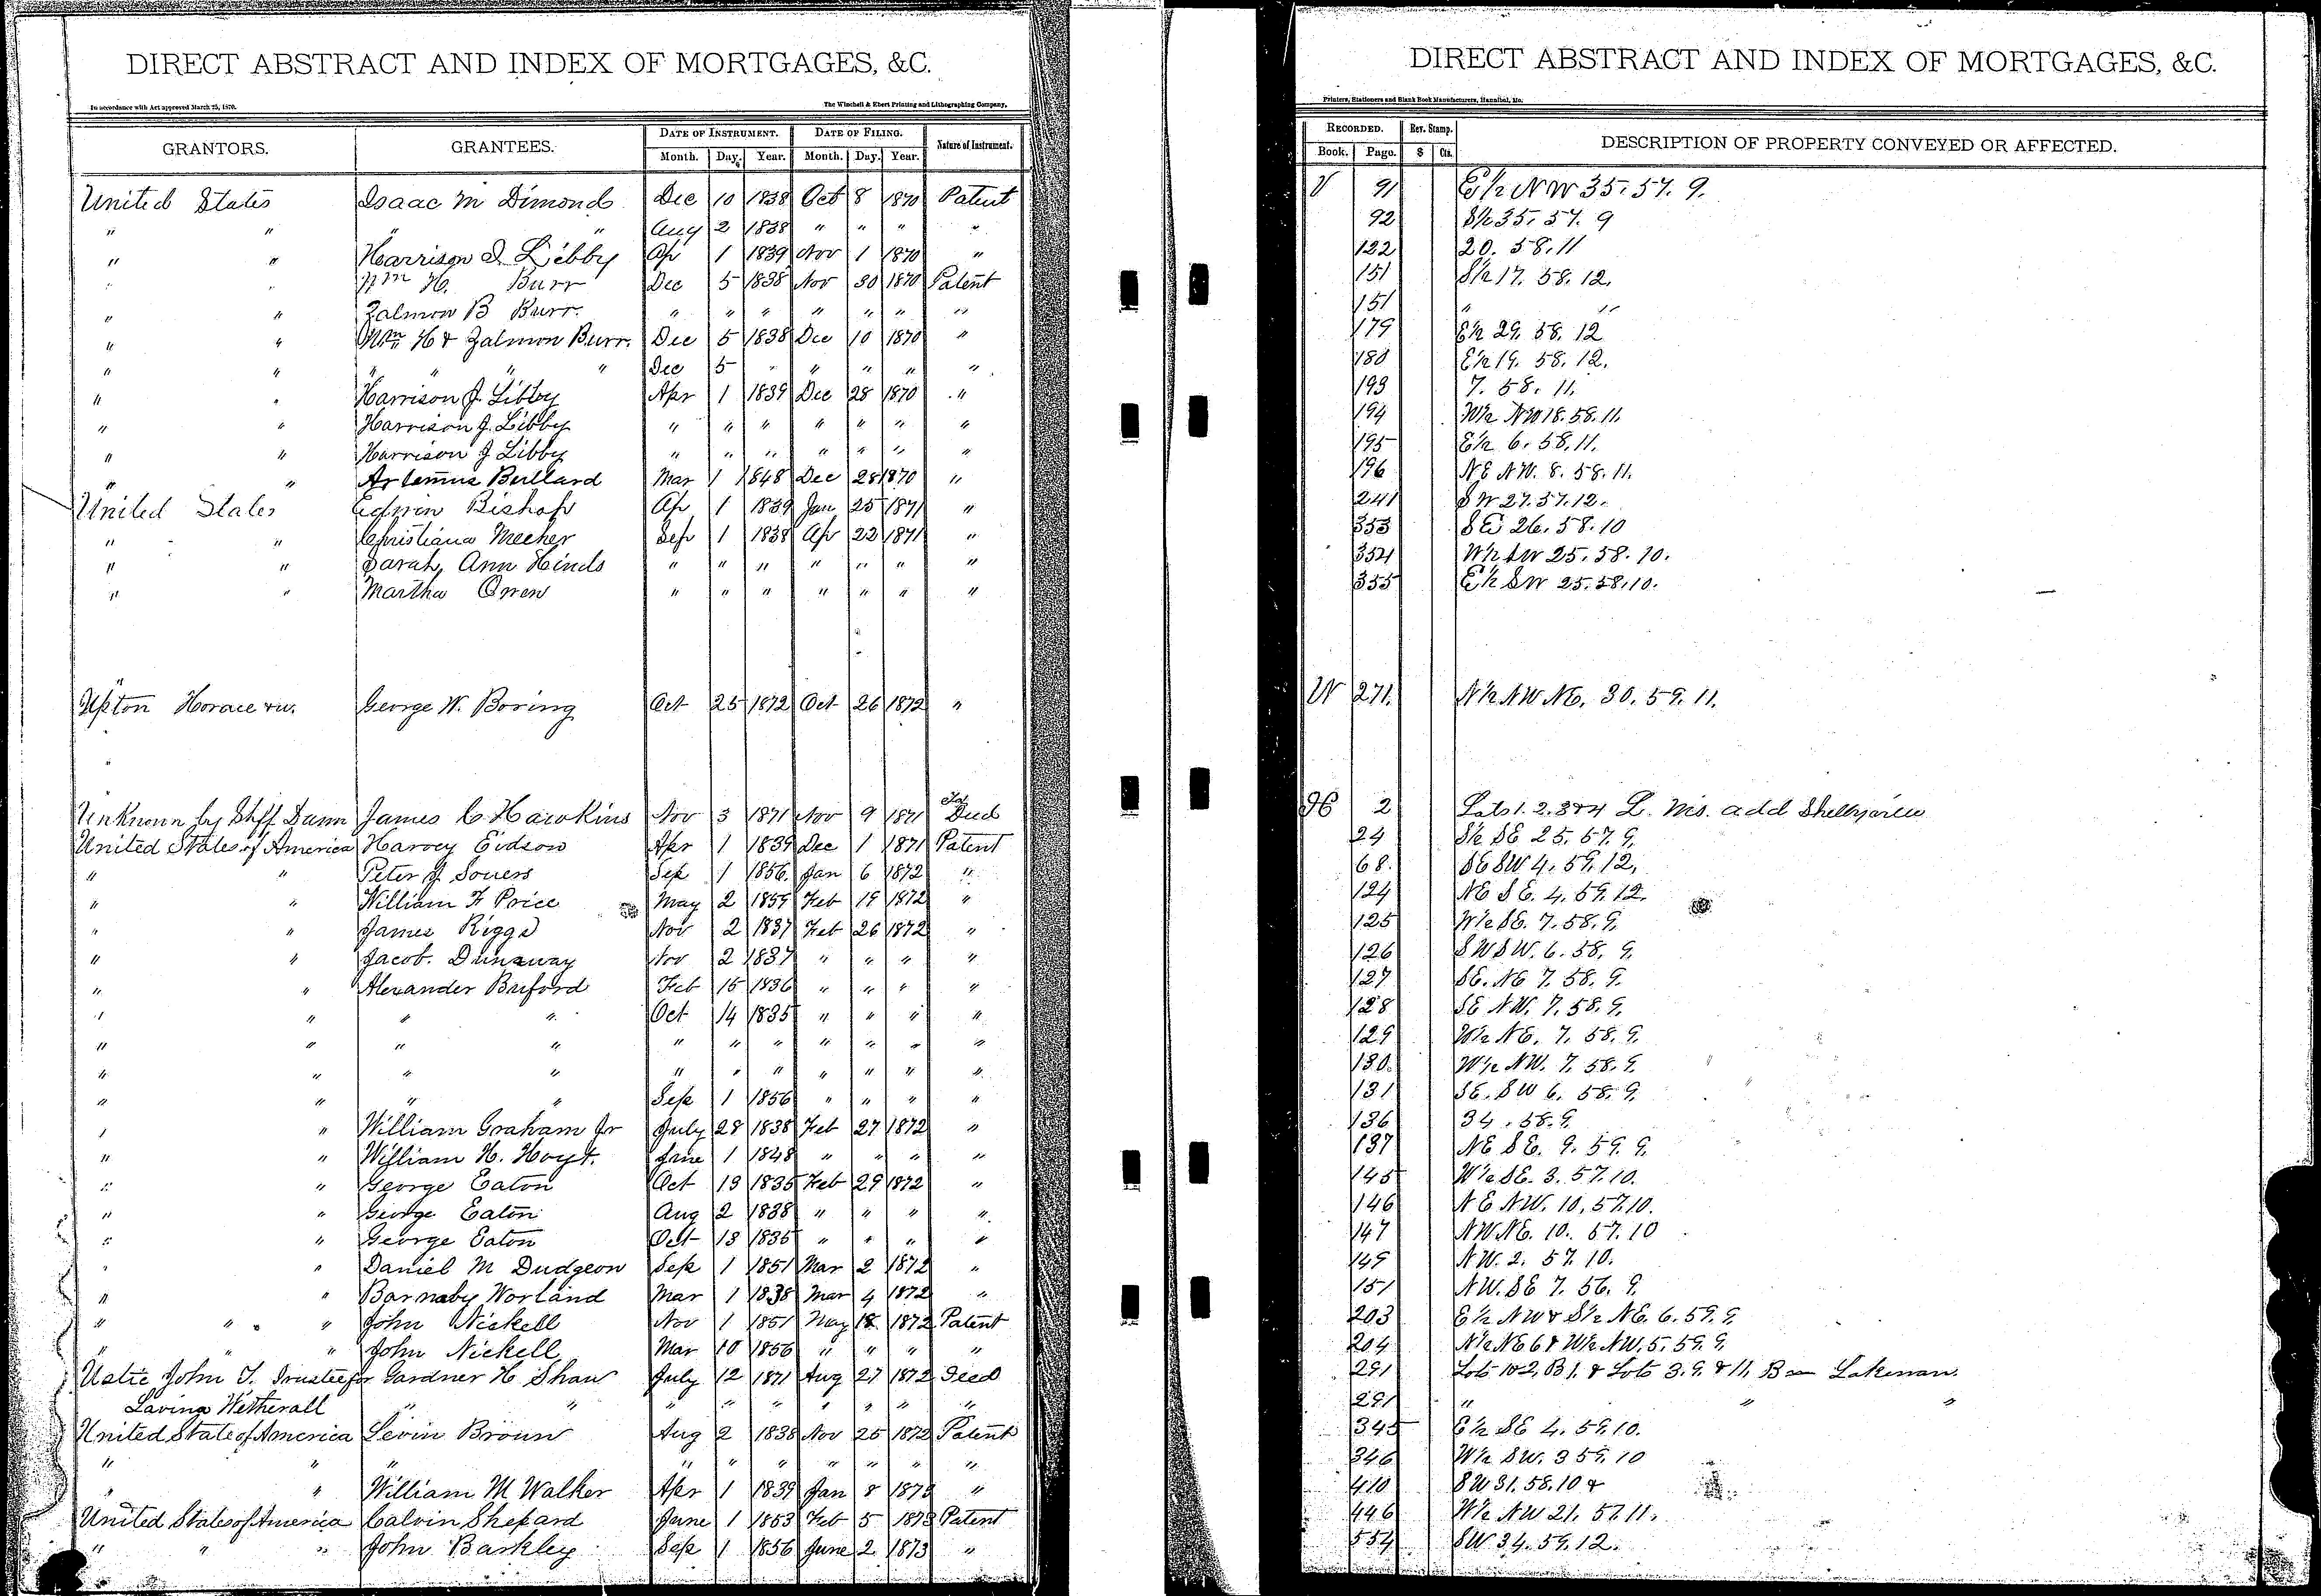 DIRECT ABSTRACT AND INDEX OF MORTGAGES, &C.
In accordance with Act approved March 25, 1870.
The Winchell & Ebert Printing and Lithographing Company,
GRANTORS. GRANTEES. DATE OF INSTRUMENT. DATE OF FILING. Nature of Instrument.
Month. Day. Year. Month. Day. Year.
United States Isaac M Dimond Dec 10 1838 Oct 8 1870 Patent
" " " " Aug 2 1838 " " " "
" " Harrison J. Libby Ap 1 1839 Nov 1 1870 "
" " Wm H. Burr Dec 5 1838 Nov 30 1870 Patent
" " Zalmon B Burr. " " " " " " "
" " Wm H & Zalmon Burr. Dec 5 1838 Dec 10 1870 "
" " " " " " Dec 5 " " " " "
" " Harrison J. Libby Apr 1 1839 Dec 28 1870 "
" " Harrison J. Libby " " " " " " "
" " Harrison J Libby " " " " " " "
" " Artemus Bullard Mar 1 1848 Dec 28 1870 "
United States Edwin Bishop Ap 1 1839 Jan 25 1871 "
" " Christiana Meeker Sep 1 1838 Ap 22 1871 "
" " Sarah Ann Hinds " " " " " " "
" " Martha Owen " " " " " " "
Upton Horace & w. George W. Boring Oct 25 1872 Oct 26 1872 "
Unknown by Shff Dunn James C Hawkins Nov 3 1871 Nov 9 1871 Deed
United States of America Harvey Eidson Apr 1 1839 Dec 1 1871 Patent
" " Peter J Souers Sep 1 1856. Jan 6 1872 "
" " William F Price May 2 1859 Feb 19 1872 "
" " James Riggs Nov 2 1837 Feb 26 1872 "
" " Jacob. Dunaway Nov 2 1837 " " " "
" " Alexander Buford Feb 15 1836 " " " "
" " " " Oct 14 1835 " " " "
" " " " " " " " " " "
" " " " " " " " " " "
" " " " Sep 1 1856 " " " "
" " William Graham Jr July 28 1838 Feb 27 1872 "
" " William H. Hoyt. June 1 1848 " " " "
" " George Eaton Oct 13 1835 Feb 29 1872 "
" " George Eaton Aug 2 1838 " " " "
" " George Eaton Oct 13 1835 " " " "
" " Daniel M Dudgeon Sep 1 1851 Mar 2 1872 "
" " Barnaby Worland Mar 1 1838 Mar 4 1872 "
" " " John Nickell Nov 1 1851 May 18 1872 Patent
" " " John Nickell Mar 10 1856 " " " "
Ustic John T. Trustee for Gardner H Shaw July 12 1871 Aug 27 1872 Deed
Lavina Wetherall " " " " " " " " "
United State of America Levin Brown Aug 2 1838 Nov 25 1872 Patent
" " " " " " " " " "
" " William M Walker Apr 1 1839 Jan 8 1873 "
United States of America Calvin Shepard June 1 1853 Feb 5 1873 Patent
" " " John Barkley Sep 1 1856 June 2 1873 "
DIRECT ABSTRACT AND INDEX OF MORTGAGES, &C.
Printers, Stationers and Blank Book Manufacturers, Hannibal, Mo.
RECORDED. Rev. Stamp. DESCRIPTION OF PROPERTY CONVEYED OR AFFECTED.
Book. Page. $ Cts.
V 91 E½ NW 35. 57. 9.
92 S½ 35. 57. 9
122 20. 58. 11
151 S½ 17. 58. 12.
151 " "
179 E½ 29. 58. 12
180 E½ 19. 58. 12.
193 7. 58. 11.
194 W½ NW 18. 58. 11.
195 E½ 6. 58. 11.
196 NE NW. 8. 58. 11.
241 SW 27. 57. 12.
353 SE 26. 58. 10
354 W½ SW 25. 58. 10.
355 E½ SW 25. 58. 10.
W 271. N½ NW NE. 30. 59. 11.
2 Lots 1. 2. 3 & 4 add Shelbyville
24 S½ SE 25. 57. 9.
68. SE SW 4. 59. 12.
124 NE SE. 4. 59. 12.
125 W½ SE. 7. 58. 9.
126 SW SW. 6. 58. 9.
127 SE. NE 7. 58. 9.
128 SE NW. 7. 58. 9.
129 W½ NE. 7. 58. 9.
130. W½ NW. 7. 58. 9.
131 SE. SW 6. 58. 9.
136 34. 58. 9.
137 NE SE. 9. 59. 9.
145 W½ SE. 3. 57. 10.
146 NE NW. 10. 57. 10.
147 NW NE. 10. 57. 10
149 NW. 2. 57. 10.
151 NW. SE 7. 56. 9.
203 E½ NW & S½ NE. 6. 59. 9.
204 N½ NE 6 & W½ NW. 5. 59. 9.
291 Lots 1 & 2, B 1. & Lots 3. 9. & 11. B Lakenan.
291 " " "
345 E½ SE 4. 59. 10.
346 W½ SW. 3 59. 10
410 SW 31. 58. 10 &
446 W½ NW 21. 57. 11.
554 SW 34. 59. 12.